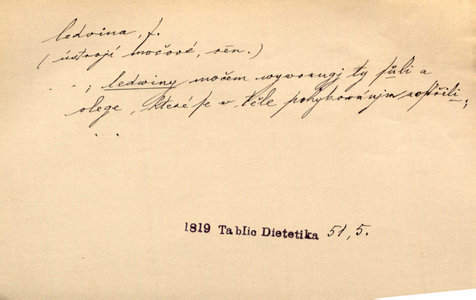 ledvina, f.
(ústrojí močové, rén.)
.. , ledwiny močem wywozugj ty sůli a
olege, které se w těle pohybowánjm
...
1819 Tablic Dietetika 51, 5.